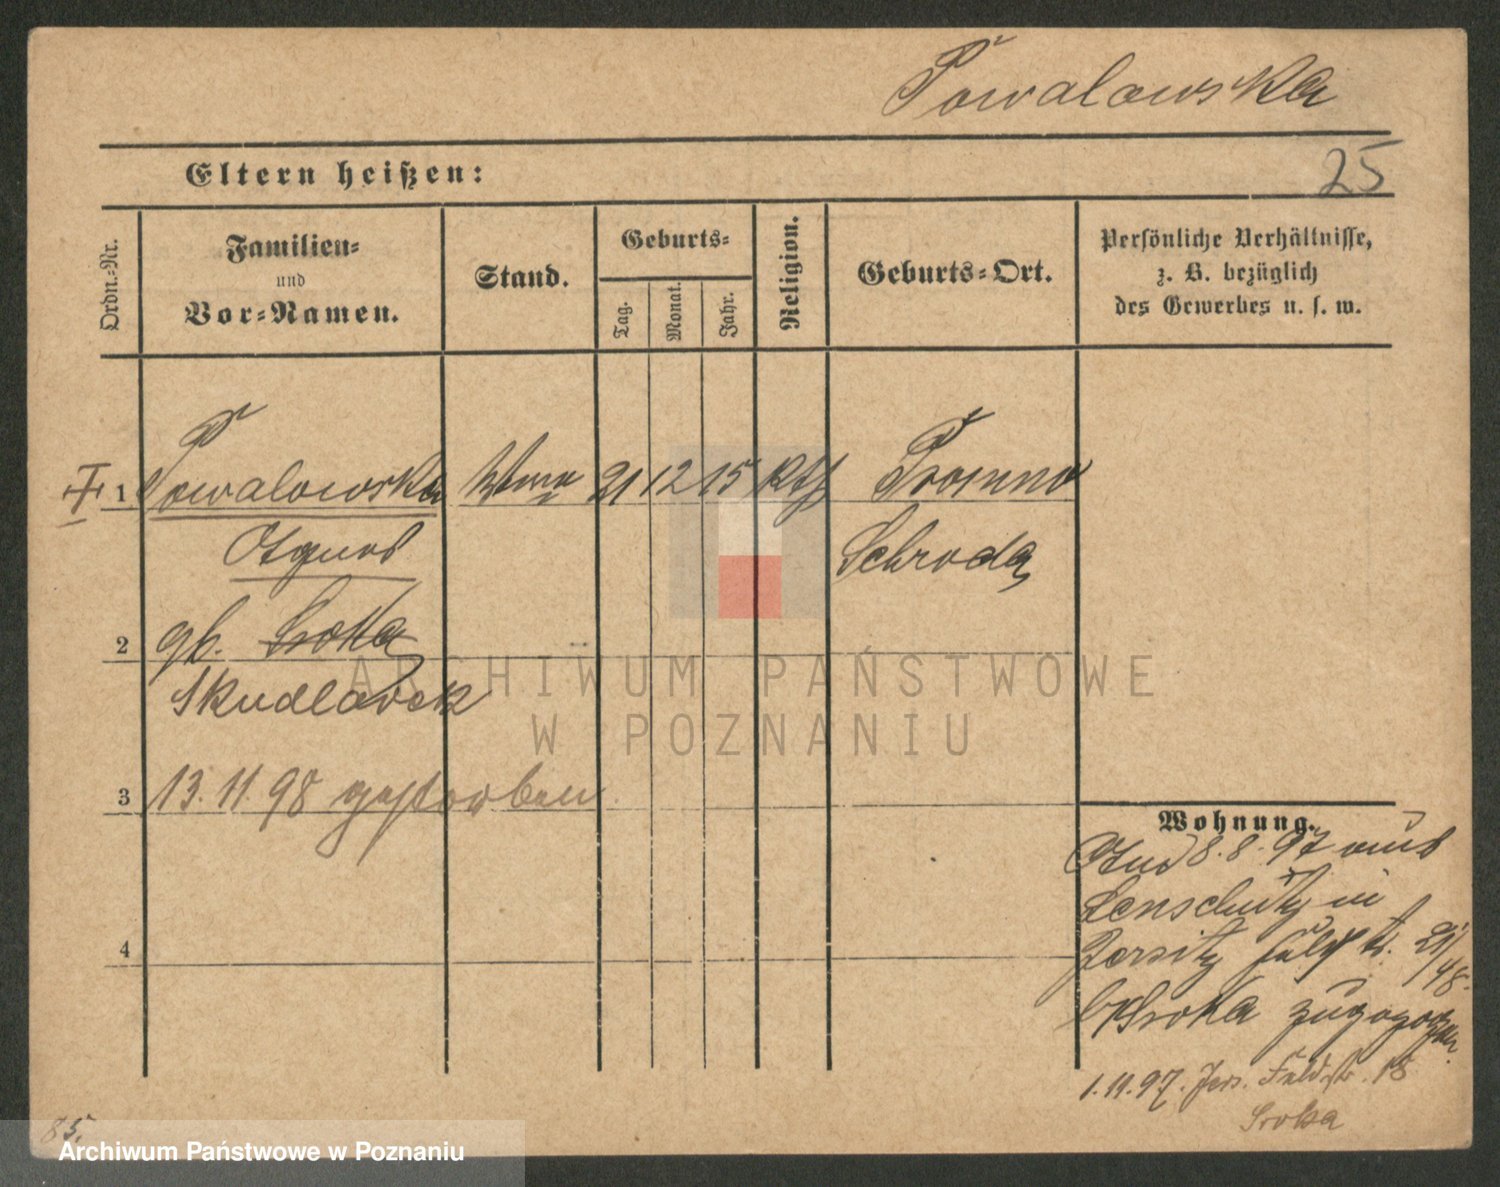 Powalowska
Eltern heißen:
25
Ordn.-Nr.
Familien-
und
Vor-Namen.
Stand.
Geburts-
Tag.
Monat.
Jahr.
Religion.
Geburts-Ort.
Persönliche Verhältnisse,
z. B. bezüglich
des Gewerbes u. s. w.
1 Powalowska Wwe 21 12 15 kth Promno
Agnes Schroda
2 gb. Sroka
Skudlarek
ARCHIWUM PAŃSTWOWE
W POZNANIU
3 13.11.98 gestorben
4
Wohnung.
8.8.97 aus
in
Jersitz 21/48.
b/Sroka zugezogen.
1.11.97. Jers. Feldstr. 18
Sroka
85.
Archiwum Państwowe w Poznaniu